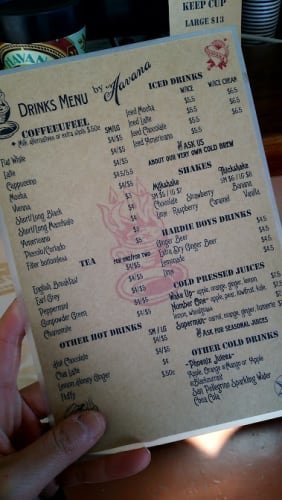 KEEP CUP
LARGE $13
DRINKS MENU by Havana
COFFEUFEEL
SM/LG
Flat White $4/$5
Latte $4/$5
Cappuccino
Mocha
Vienna $4/$5
Short/Long Black $4/$5
Short/Long Macchiato $4/$5
Americano
Piccolo/Cortado
Filter bottomless
TEA FOR ONE/FOR TWO
English Breakfast $4/$5
Earl Grey $4/$5
Peppermint $4/$5
Gunpowder Green $4/$5
Chamomile $4/$5
OTHER HOT DRINKS
SM / LG
Hot Chocolate $4/$5
Chai Latte $4/$5
Lemon Honey Ginger $4
Fluffy $.50c
ICED DRINKS
W/ICE W/ICE CREAM
Iced Mocha $5.5 $6.5
Iced Latte $5.5 $6.5
Iced Chocolate $5.5 $6.5
Iced Americano $5.5
ASK US
ABOUT OUR VERY OWN COLD BREW
SHAKES
Milkshake
Thickshake
Chocolate Strawberry Banana
Lime Raspberry Caramel Vanilla
HARDIE BOYS DRINKS
Ginger Beer $4.5
Extra Dry Ginger Beer $4.5
Lemonade $4.5
Lime $4.5
COLD PRESSED JUICES
Wake Up- apple, orange, ginger, lemon
Number One- apple, pear, kiwifruit, kale,
lemon, wheatgrass
Superman- carrot, orange, ginger, turmeric
ASK FOR SEASONAL JUICES
OTHER COLD DRINKS
-Phoenix Juices-
Apple, Orange &Mango or Apple
&Blackcurrant
San Pellegrino Sparkling Water
Coca Cola